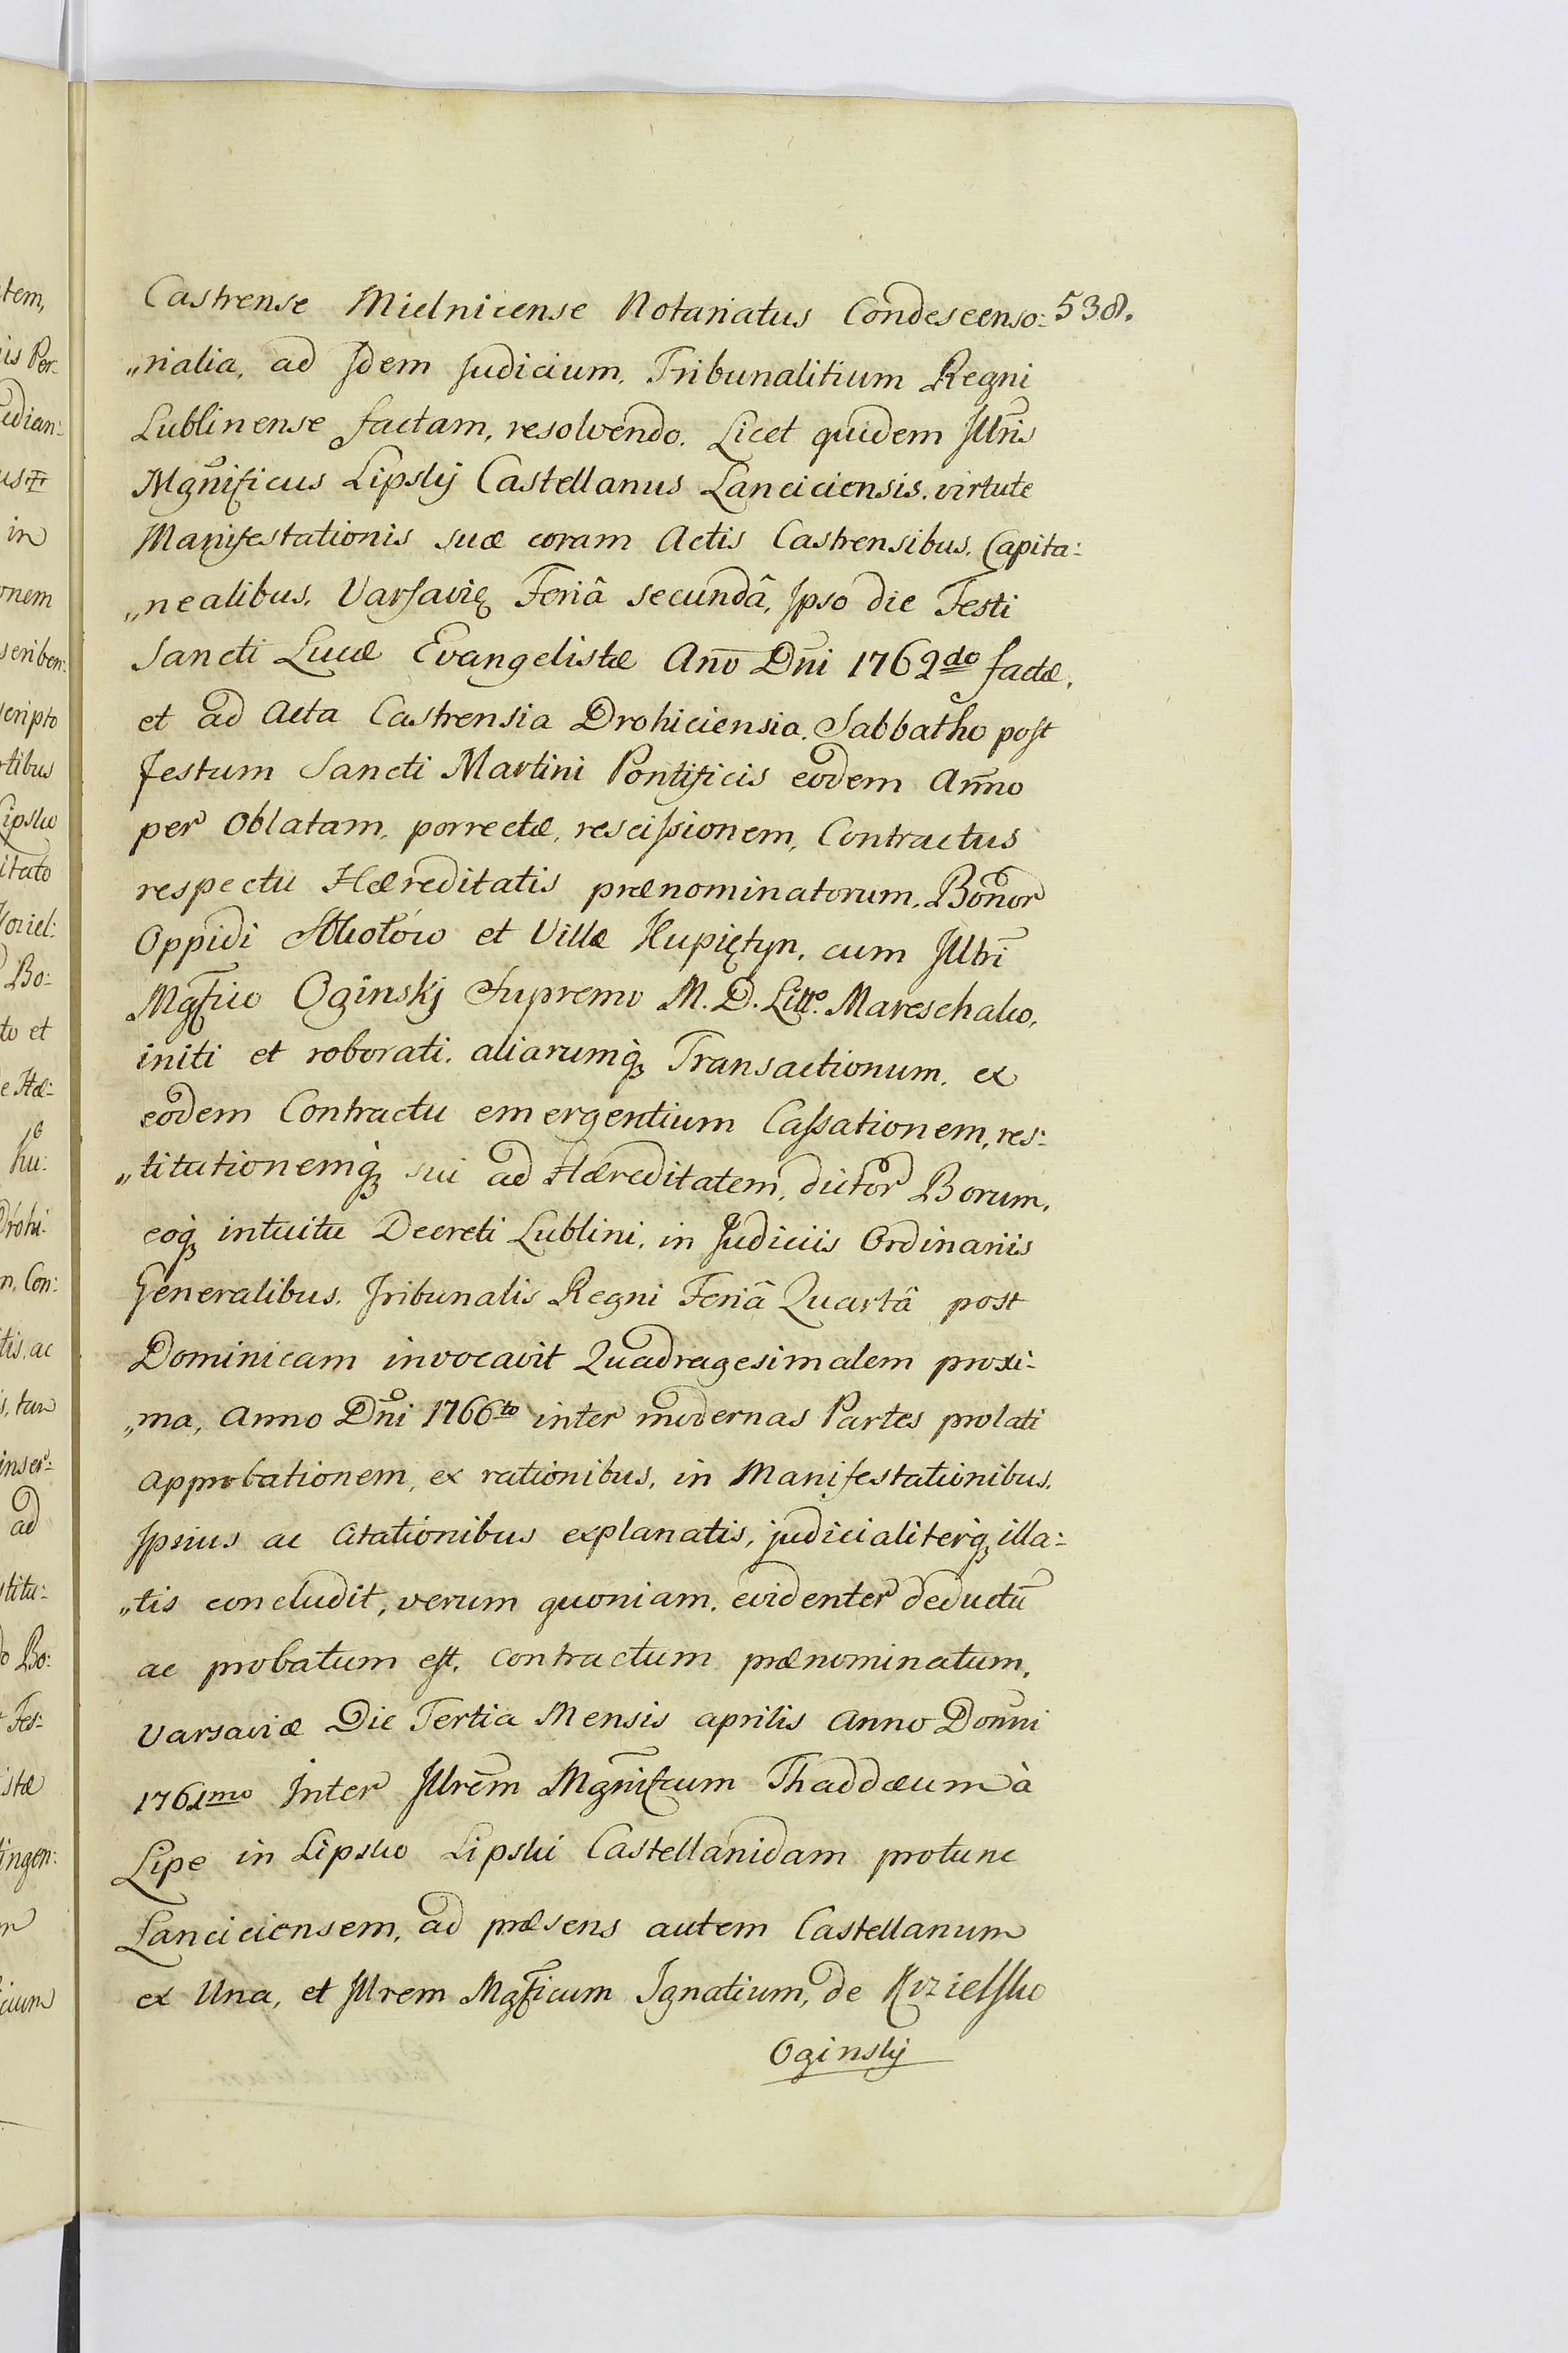 538.
Castrense Mielnicense Notariatus Condescenso:
„rialia, ad Idem Judicium, Tribunalitium Regni
Lublinense factam, resolvendo. Licet quidem Illris
Mgnificus Lipsky Castellanus Lanciciensis, virtute
Manifestationis suæ coram Actis Castrensibus, Capita:
„nealibus, Varsavię Feriâ secundâ, Ipso die Festi
Sancti Lucæ Evangelistæ Ano Dni 1762do factæ,
et ad Acta Castrensia Drohiciensia, Sabbatho post
festum Sancti Martini Pontificis eodem Anno
per Oblatam, porrectæ, rescissionem, Contractus
respectu Hæreditatis prænominatorum, Bonor
Oppidi Mokołów et Villæ Kupiętyn, cum Illri
Mgfico Oginskj Supremo M. D. Litt. Mareschalco,
initi et roborati, aliarumq3 Transactionum, ex
eodem Contractu emergentium Cassationem, res:
„titutionemq3 sui ad Hæreditatem, dictor Borum,
eoq3 intuitu Decreti Lublini, in Judiciis Ordinariis
Generalibus, Tribunalis Regni Feriâ Quartâ post
Dominicam invocavit Quadragesimalem proxi:
„ma, Anno Dni 1766to inter modernas Partes prolati
approbationem, ex rationibus, in Manifestationibus,
Ipsius ac Citationibus explanatis, judicialiterq3 illa:
„tis concludit, verum quoniam, evidenter deductū
ac probatum est, contractum prænominatum,
Varsaviæ Die Tertia Mensis aprilis Anno Domni
1761mo Inter Illrem Mgnificum Thaddæum à
Lipe in Lipsko Lipski Castellanidam protunc
Lanciciensem, ad præsens autem Castellanum
ex Una, et Illrem Mgficum Ignatium, de Kozielsko
Oginsky